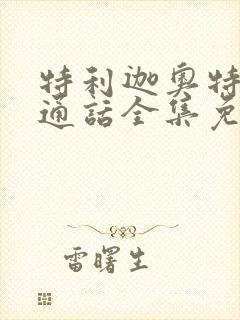 特利迦奥特
通話全集免
雷曙生